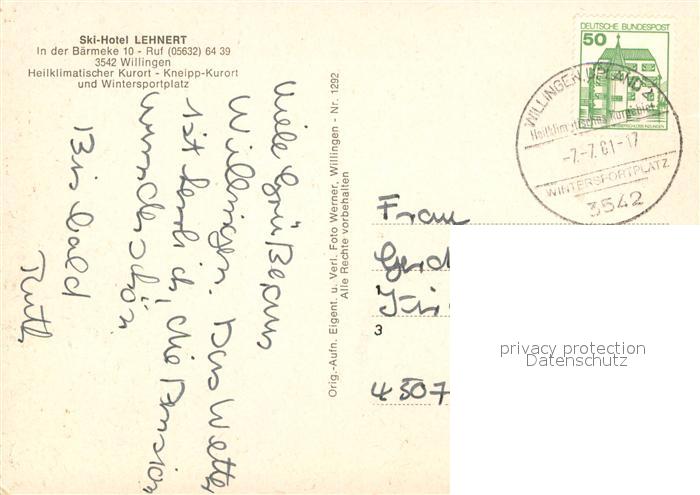 Ski-Hotel LEHNERT
In der Bärmeke 10 - Ruf (05632) 64 39
3542 Willingen
Heilklimatischer Kurort - Kneipp-Kurort
und Wintersportplatz
Viele Grüße aus
Willingen. Das Wetter
ist herrlich, die Pension
wunderschön!
Bis bald
Ruth
Orig.-Aufn. Eigent. u. Verl. Foto Werner, Willingen - Nr. 1292
Alle Rechte vorbehalten
DEUTSCHE BUNDESPOST
50
WILLINGEN, UPLAND
Heilklimatisches Kurgebiet
-7.-7.81-17
WINTERSPORTPLATZ
3542
Frau
3
privacy protection
Datenschutz